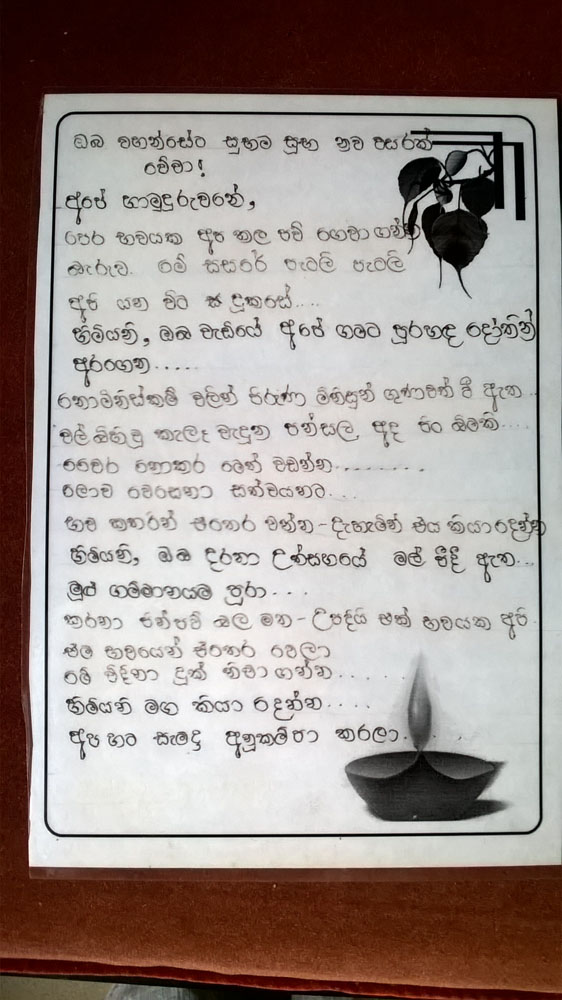 ඔබ වහන්සේට සුභම සුභ නව වසරක්
වේවා!
අපේ හාමුදුරුවනේ,
පෙර භවයක අප කල පව් ගෙවා ගන්න
බැරුව මේ සසරේ පැටලි පැටලි
අපි යන විට ස දුකසේ....
හිමියනි, ඔබ වැඩියේ අපේ ගමට පුරහඳ දෝතින්
අරගෙන.....
නොමිනිස්කම් වලින් පිරුණ මිනිසුන් ගුණවත් වී ඇත..
වල් බිහි වූ කැලෑ වැදුන පන්සල අද පිං බිමකි....
වෛර නොකර මෙත් වඩන්න........
ලොව වෙසෙනා සත්වයනට...
භව කතරින් එතෙර වන්න - දැහැමින් එය කියා දෙන්න
හිමියනි, ඔබ දරනා උත්සහයේ මල් පිදී ඇත...
මුළු ගම්මානයම පුරා...
කරනා පින්පව් බල මත - උපදියි එක් භවයක අපි.
එම භවයෙන් එතෙර වෙලා
මේ විඳිනා දුක් නිවා ගන්න..........
හිමියනි මග කියා දෙන්න.....
අප හට සැමදා අනුකම්පා කරලා......